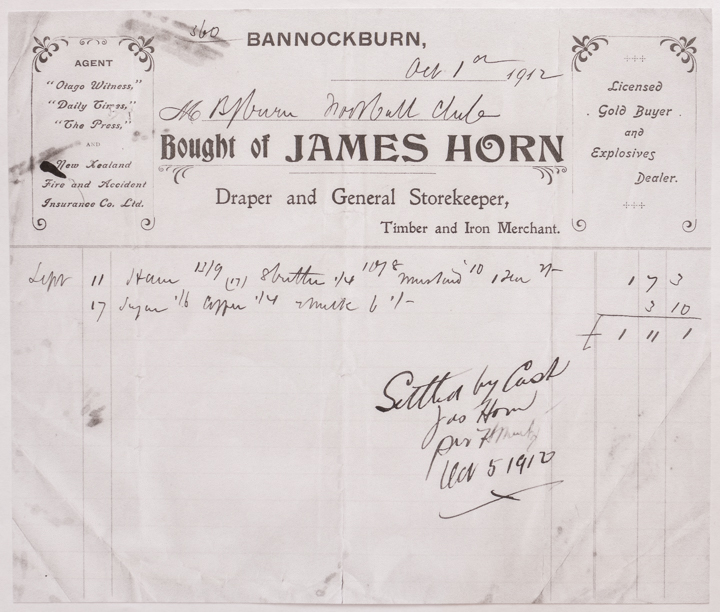 360
BANNOCKBURN,
Oct 1st 1912
M B/burn Football Club
Bought of JAMES HORN
Draper and General Storekeeper,
Timber and Iron Merchant.
AGENT
"Otago Witness,"
"Daily Times,"
"The Press,"
AND
New Zealand
Fire and Accident
Insurance Co. Ltd.
Licensed
Gold Buyer
and
Explosives
Dealer.
Sept 11 Ham 13/9 (17) 8 butter 1/4 10/8 Mustard 10 1 Tea 2/- 1 7 3
17 Sugar 1/6 Coffee 1/4 milk 6 1/- 3 10
£ 1 11 1
Settled by Cash
Jas Horn
per
Oct 5 1912